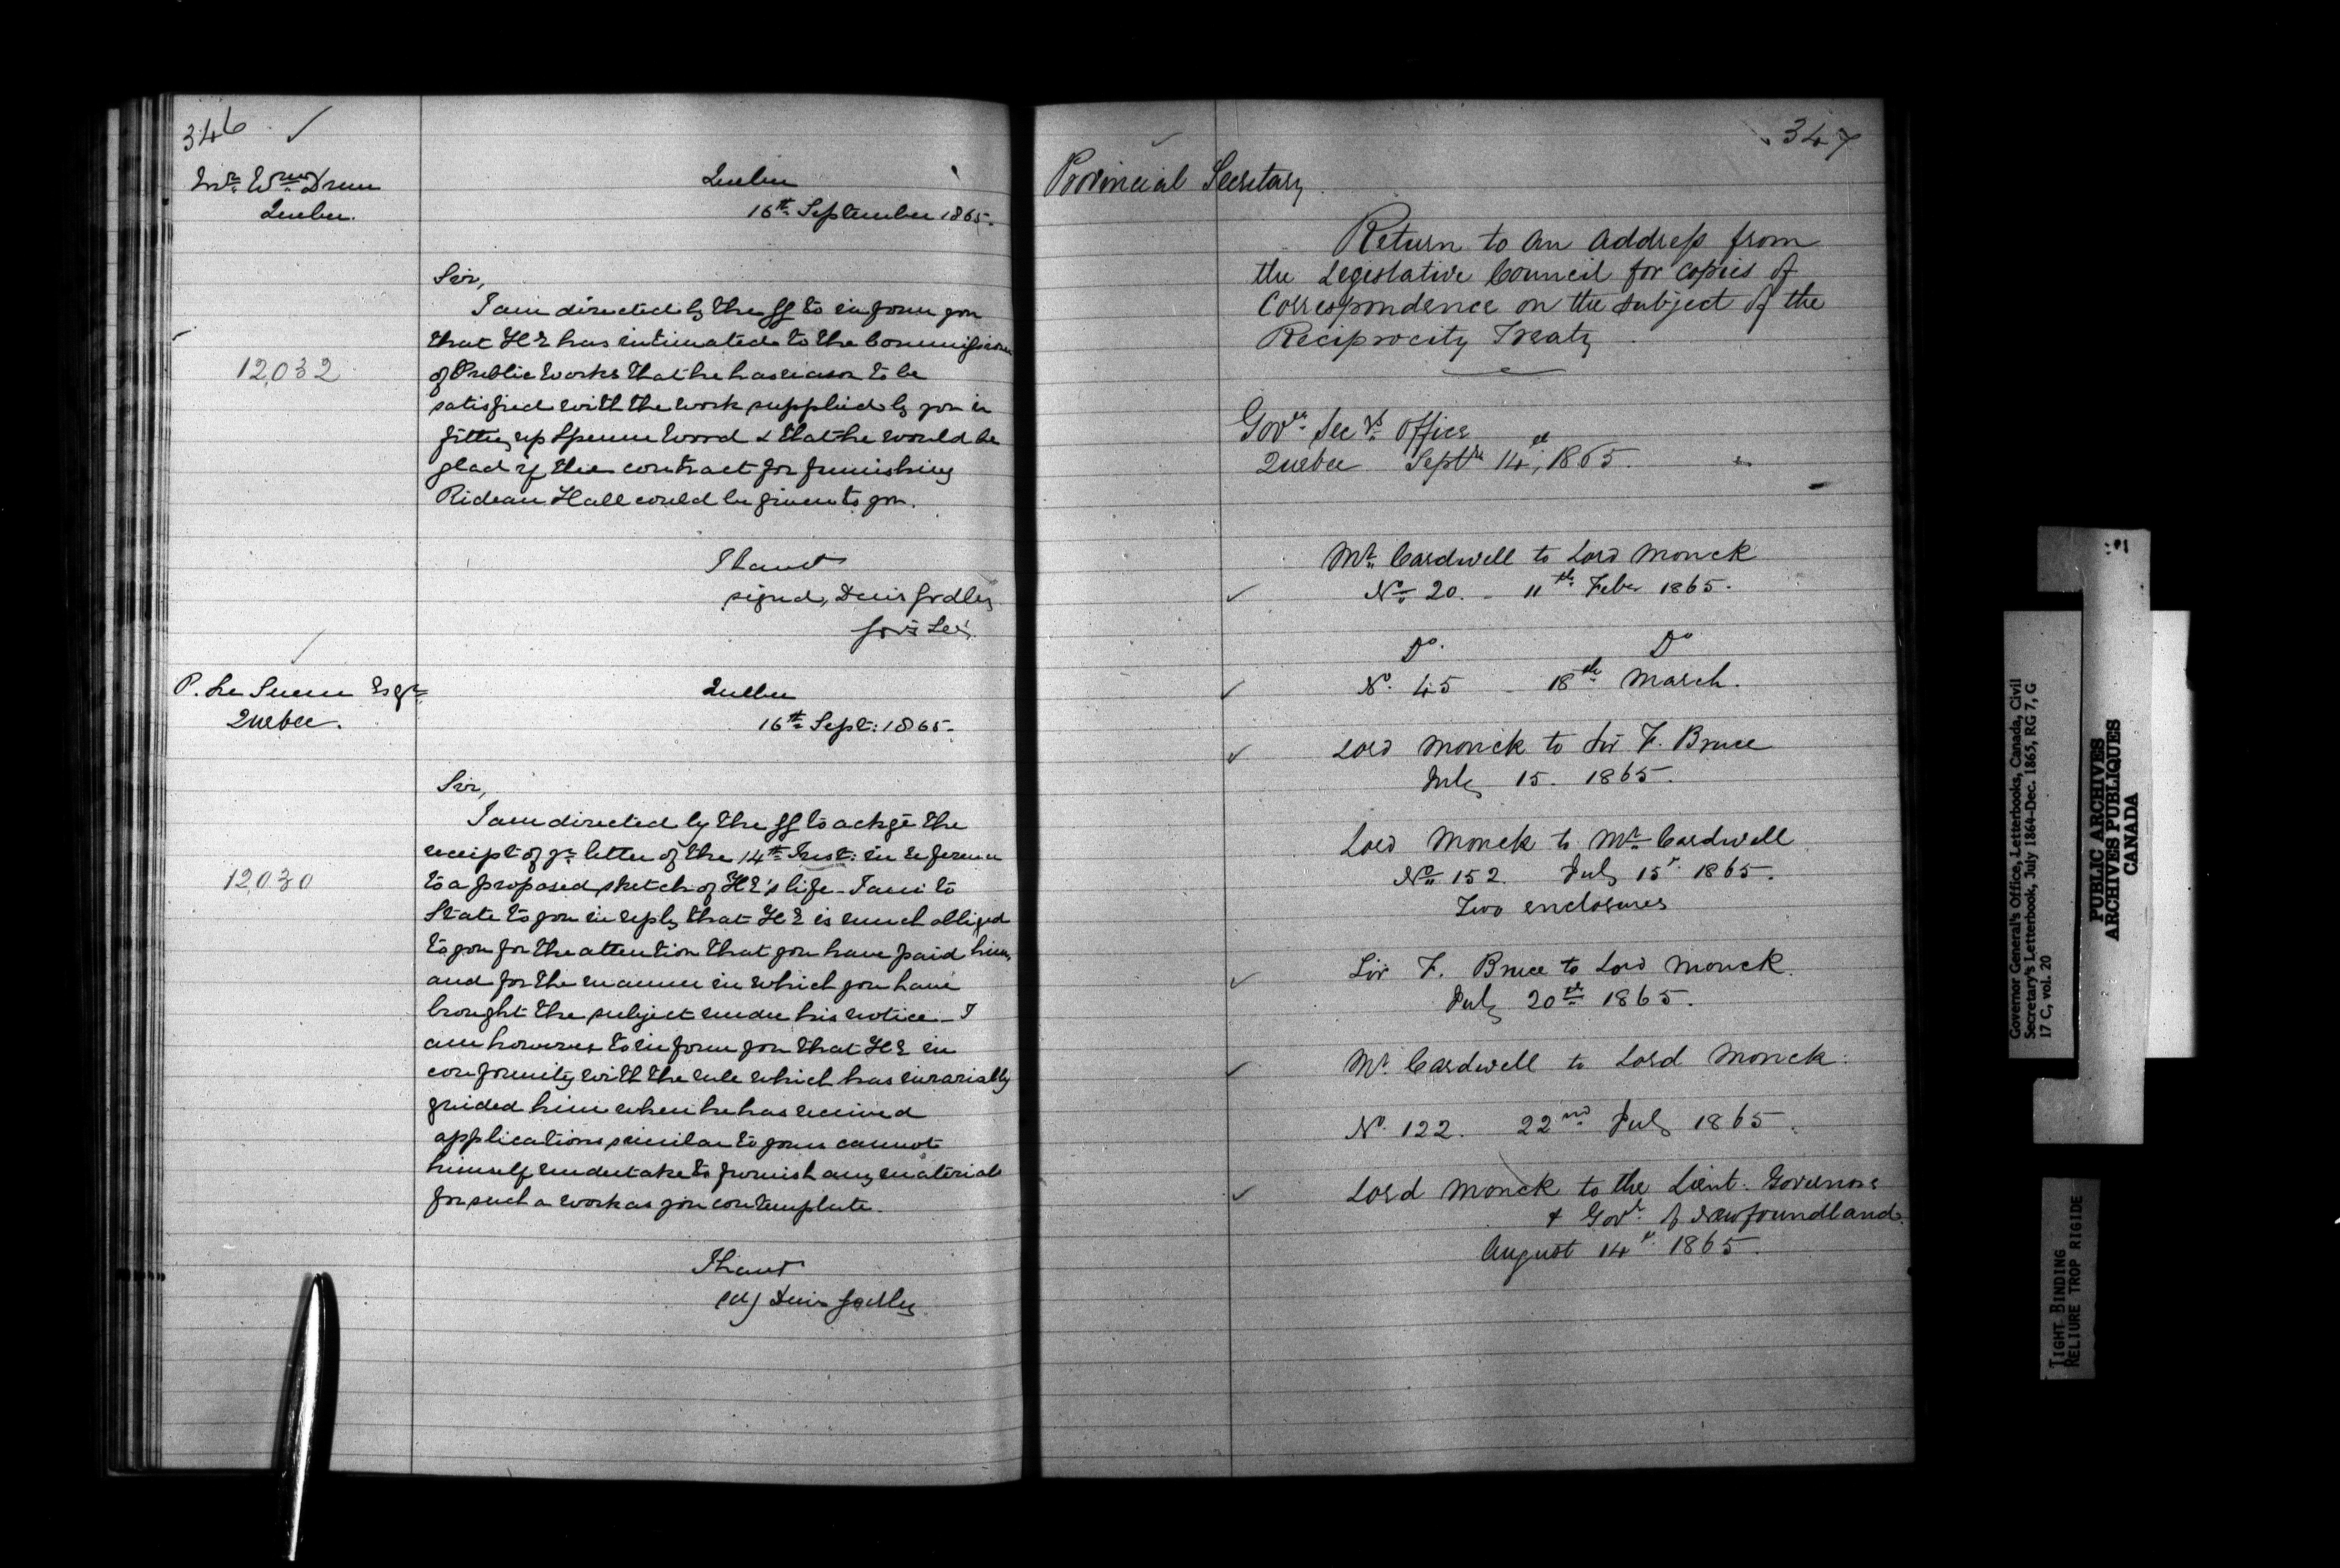 346
Mr. Wm. Drum
Quebec.
Quebec
16th September 1865.
Sir,
I am directed by the GG to inform you
that HE has intimated to the Commissioner
12,032
of Public Works that he has reason to be
satisfied with the work supplied by you in
fitting up Spencer Wood & that he would be
glad if the contract for furnishing
Rideau Hall could be given to you.
I have &c
signed, Denis Godley
Gov's Secy.
P. Le Sueur Esqr
Quebec.
Quebec
16th Sept: 1865.
Sir,
I am directed by the GG to ackge the
receipt of yr letter of the 14th Inst: in reference
12,030
to a proposed sketch of HE's life. I am to
state to you in reply that HE is much obliged
to you for the attention that you have paid him,
and for the manner in which you have
brought the subject under his notice – I
am however to inform you that HE in
conformity with the rule which has invariably
guided him when he has received
applications similar to yours cannot
himself undertake to furnish any materials
for such a work as you contemplate.
I have &c
(sd) Denis Godley
347
Provincial Secretary
Return to an Address from
the Legislative Council for copies of
Correspondence on the subject of the
Reciprocity Treaty
Govr. Secy's. Office
Quebec Septr 14th, 1865.
Mr. Cardwell to Lord Monck
No. 20. – 11th Feby 1865.
Do. Do
No. 45 – 18th March.
Lord Monck to Sir F. Bruce
July 15. 1865.
Lord Monck to Mr. Cardwell
No. 152 July 15th 1865.
Two enclosures
Sir F. Bruce to Lord Monck.
July 20th 1865.
Mr. Cardwell to Lord Monck.
No. 122. 22nd July 1865.
Lord Monck to the Lieut. Governors
& Govr. of Newfoundland.
August 14th 1865.
Governor General's Office, Letterbooks, Canada, Civil
Secretary's Letterbook, July 1864-Dec. 1865, RG 7, G
17 C, vol. 20
PUBLIC ARCHIVES
ARCHIVES PUBLIQUES
CANADA
TIGHT BINDING
RELIURE TROP RIGIDE